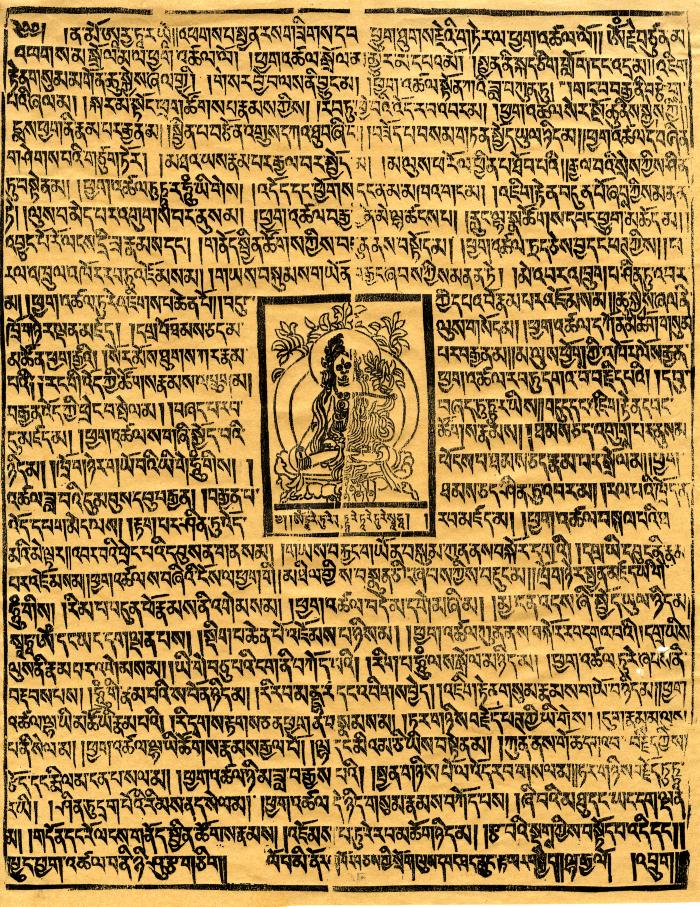 ༄༅། །ན་མོ་ཨཱརྱ་ཏཱ་ར་ཡཻ། །འཕགས་པ་སྤྱན་རས་གཟིགས་དབ ཕྱུག་ཐུགས་རྗེའི་གཏེར་ལ་ཕྱག་འཚལ་ལོ། །ཨོཾ་རྗེ་བཙུན་མ་
འཕགས་མ་སྒྲོལ་མ་ལ་ཕྱག་འཚལ་ལོ། །ཕྱག་འཚལ་སྒྲོལ་མ་མྱུར་མ་དཔའ་མོ། །སྤྱན་ནི་སྐད་ཅིག་གློག་དང་འདྲ་མ། །འཇིག་
རྟེན་གསུམ་མགོན་ཆུ་སྐྱེས་ཞལ་གྱི། །གེ་སར་བྱེ་བ་ལས་ནི་བྱུང་མ། །ཕྱག་འཚལ་སྟོན་ཀའི་ཟླ་བ་ཀུན་ཏུ། །གང་བ་བརྒྱ་ནི་བརྩེགས་
པའི་ཞལ་མ། །སྐར་མ་སྟོང་ཕྲག་ཚོགས་པ་རྣམས་ཀྱིས། །རབ་ཏུ་ཕྱེ་བའི་འོད་རབ་འབར་མ། །ཕྱག་འཚལ་སེར་སྔོ་ཆུ་ནས་སྐྱེས་ཀྱི།
པདྨས་ཕྱག་ནི་རྣམ་པར་བརྒྱན་མ། །སྦྱིན་པ་བརྩོན་འགྲུས་དཀའ་ཐུབ་ཞི་བ། །བཟོད་པ་བསམ་གཏན་སྤྱོད་ཡུལ་ཉིད་མ། །ཕྱག་འཚལ་དེ་བཞིན་
གཤེགས་པའི་གཙུག་ཏོར། །མཐའ་ཡས་རྣམ་པར་རྒྱལ་བར་སྤྱོད་མ། །མ་ལུས་ཕ་རོལ་ཕྱིན་པ་ཐོབ་པའི། །རྒྱལ་བའི་སྲས་ཀྱིས་ཤིན་
ཏུ་བསྟེན་མ། །ཕྱག་འཚལ་ཏུཏྟཱ་ར་ཧཱུྃ་ཡི་གེས། །འདོད་དང་ཕྱོགས་དང་ནམ་མཁའ་གང་མ། །འཇིག་རྟེན་བདུན་པོ་ཞབས་ཀྱིས་མནན་
ཏེ། །ལུས་པ་མེད་པར་འགུགས་པར་ནུས་མ། །ཕྱག་འཚལ་བརྒྱ་བྱིན་མེ་ལྷ་ཚངས་པ། །རླུང་ལྷ་སྣ་ཚོགས་དབང་ཕྱུག་མཆོད་མ། །
འབྱུང་པོ་རོ་ལངས་དྲི་ཟ་རྣམས་དང་། །གནོད་སྦྱིན་ཚོགས་ཀྱིས་མདུན་ནས་བསྟོད་མ། །ཕྱག་འཚལ་ཏྲད་ཅེས་བྱ་དང་ཕཊ་ཀྱིས། །ཕ་
རོལ་འཁྲུལ་འཁོར་རབ་ཏུ་འཇོམས་མ། །གཡས་བསྐུམས་གཡོན་བརྐྱང་ཞབས་ཀྱིས་མནན་ཏེ། །མེ་འབར་འཁྲུག་པ་ཤིན་ཏུ་འབར་
མ། །ཕྱག་འཚལ་ཏུ་རེ་འཇིགས་པ་ཆེན་པོ། །བདུད་ ཀྱི་དཔའ་བོ་རྣམ་པར་འཇོམས་མ། །ཆུ་སྐྱེས་ཞལ་ནི་
ཁྲོ་གཉེར་ལྡན་མཛད། །དགྲ་བོ་ཐམས་ཅད་མ་ ལུས་གསོད་མ། །ཕྱག་འཚལ་དཀོན་མཆོག་གསུམ་
མཚོན་ཕྱག་རྒྱའི། །སོར་མོས་ཐུགས་ཀར་རྣམ་ པར་བརྒྱན་མ། །མ་ལུས་ཕྱོགས་ཀྱི་འཁོར་ལོས་བརྒྱན་
པའི། །རང་གི་འོད་ཀྱི་ཚོགས་རྣམས་འཁྲུག་མ། ཕྱག་འཚལ་རབ་ཏུ་དགའ་བ་བརྗིད་པའི། །དབུ་
བརྒྱན་འོད་ཀྱི་ཕྲེང་བ་སྤེལ་མ། །བཞད་པ་རབ་ བཞད་ཏུཏྟཱ་ར་ཡིས། །བདུད་དང་འཇིག་རྟེན་དབང་
དུ་མཛད་མ། །ཕྱག་འཚལ་ས་གཞི་སྐྱོང་བའི་ ཚོགས་རྣམས། །ཐམས་ཅད་འགུགས་པར་ནུས་མ་
ཉིད་མ། །ཁྲོ་གཉེར་གཡོ་བའི་ཡི་གེ་ཧཱུྃ་གིས། ། ཕོངས་པ་ཐམས་ཅད་རྣམ་པར་སྒྲོལ་མ། །ཕྱག་
འཚལ་ཟླ་བའི་དུམ་བུས་དབུ་བརྒྱན། །བརྒྱན་པ་ ཐམས་ཅད་ཤིན་ཏུ་འབར་མ། །རལ་པའི་ཁྲོད་ན་
འོད་དཔག་མེད་ལས། །རྟག་པར་ཤིན་ཏུ་འོད་ རབ་མཛད་མ། །ཕྱག་འཚལ་བསྐལ་པའི་ཐ་
ཨོཾ་ཏཱ་རེ་ཏུཏྟཱ་རེ་ཏུ་རེ་སྭཱ་ཧཱ།
མའི་མེ་ལྟར། །འབར་བའི་ཕྲེང་བའི་དབུས་ན་གནས་མ། །གཡས་བརྐྱང་གཡོན་བསྐུམ་ཀུན་ནས་བསྐོར་དགའི། །དགྲ་ཡི་དཔུང་ནི་རྣམ་
པར་འཇོམས་མ། །ཕྱག་འཚལ་ས་གཞིའི་ངོས་ལ་ཕྱག་གི། །མཐིལ་གྱིས་བསྣུན་ཅིང་ཞབས་ཀྱིས་བརྡུང་མ། །ཁྲོ་གཉེར་ཅན་མཛད་ཡི་གེ་
ཧཱུྃ་གིས། །རིམ་པ་བདུན་པོ་རྣམས་ནི་འགེམས་མ། །ཕྱག་འཚལ་བདེ་མ་དགེ་མ་ཞི་མ། །མྱ་ངན་འདས་ཞི་སྤྱོད་ཡུལ་ཉིད་མ།
སྭཱ་ཧཱ་ཨོཾ་དང་ཡང་དག་ལྡན་པས། །སྡིག་པ་ཆེན་པོ་འཇོམས་པ་ཉིད་མ། །ཕྱག་འཚལ་ཀུན་ནས་བསྐོར་རབ་དགའ་བའི། །དགྲ་ཡི་
ལུས་ནི་རྣམ་པར་འགེམས་མ། །ཡི་གེ་བཅུ་པའི་ངག་ནི་བཀོད་པའི། །རིག་པ་ཧཱུྃ་ལས་སྒྲོལ་མ་ཉིད་མ། །ཕྱག་འཚལ་ཏུ་རེ་ཞབས་ནི་
བརྡབས་པས། །ཧཱུྃ་གི་རྣམ་པའི་ས་བོན་ཉིད་མ། །རི་རབ་མནྡཱ་ར་དང་འབིགས་བྱེད། །འཇིག་རྟེན་གསུམ་རྣམས་གཡོ་བ་ཉིད་མ། །ཕྱག་
འཚལ་ལྷ་ཡི་མཚོ་ཡི་རྣམ་པའི། །རི་དྭགས་རྟགས་ཅན་ཕྱག་ན་བསྣམས་མ། །ཏཱ་ར་གཉིས་བརྗོད་ཕཊ་ཀྱི་ཡི་གེས། །དུག་རྣམས་མ་ལུས་
པར་ནི་སེལ་མ། །ཕྱག་འཚལ་ལྷ་ཡི་ཚོགས་རྣམས་རྒྱལ་པོ། །ལྷ་དང་མི་འམ་ཅི་ཡིས་བསྟེན་མ། །ཀུན་ནས་གོ་ཆ་དགའ་བ་བརྗིད་ཀྱིས། །
རྩོད་དང་རྨི་ལམ་ངན་པ་སེལ་མ། །ཕྱག་འཚལ་ཉི་མ་ཟླ་བ་རྒྱས་པའི། །སྤྱན་གཉིས་པོ་ལ་འོད་རབ་གསལ་མ། །ཧ་ར་གཉིས་བརྗོད་ཏུཏྟཱ་
ར་ཡི། །ཤིན་ཏུ་དྲག་པོའི་རིམས་ནད་སེལ་མ། །ཕྱག་འཚལ་དེ་ཉིད་གསུམ་རྣམས་བཀོད་པས། །ཞི་བའི་མཐུ་དང་ཡང་དག་ལྡན་
མ། །གདོན་དང་རོ་ལངས་གནོད་སྦྱིན་ཚོགས་རྣམས། །འཇོམས་པ་ཏུ་རེ་རབ་མཆོག་ཉིད་མ། །རྩ་བའི་སྔགས་ཀྱིས་བསྟོད་པ་འདི་དང་། །
ཕྱག་འཚལ་བ་ནི་ཉི་ཤུ་རྩ་གཅིག །